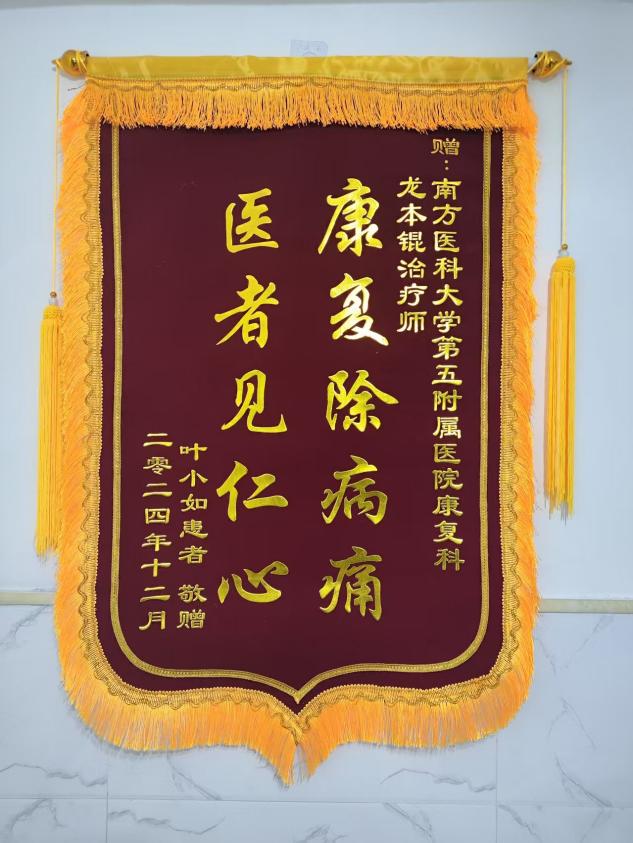 赠：南方医科大学第五附属医院康复科
龙本锟治疗师
康复除病痛
医者见仁心
叶小如患者 敬赠
二零二四年十二月